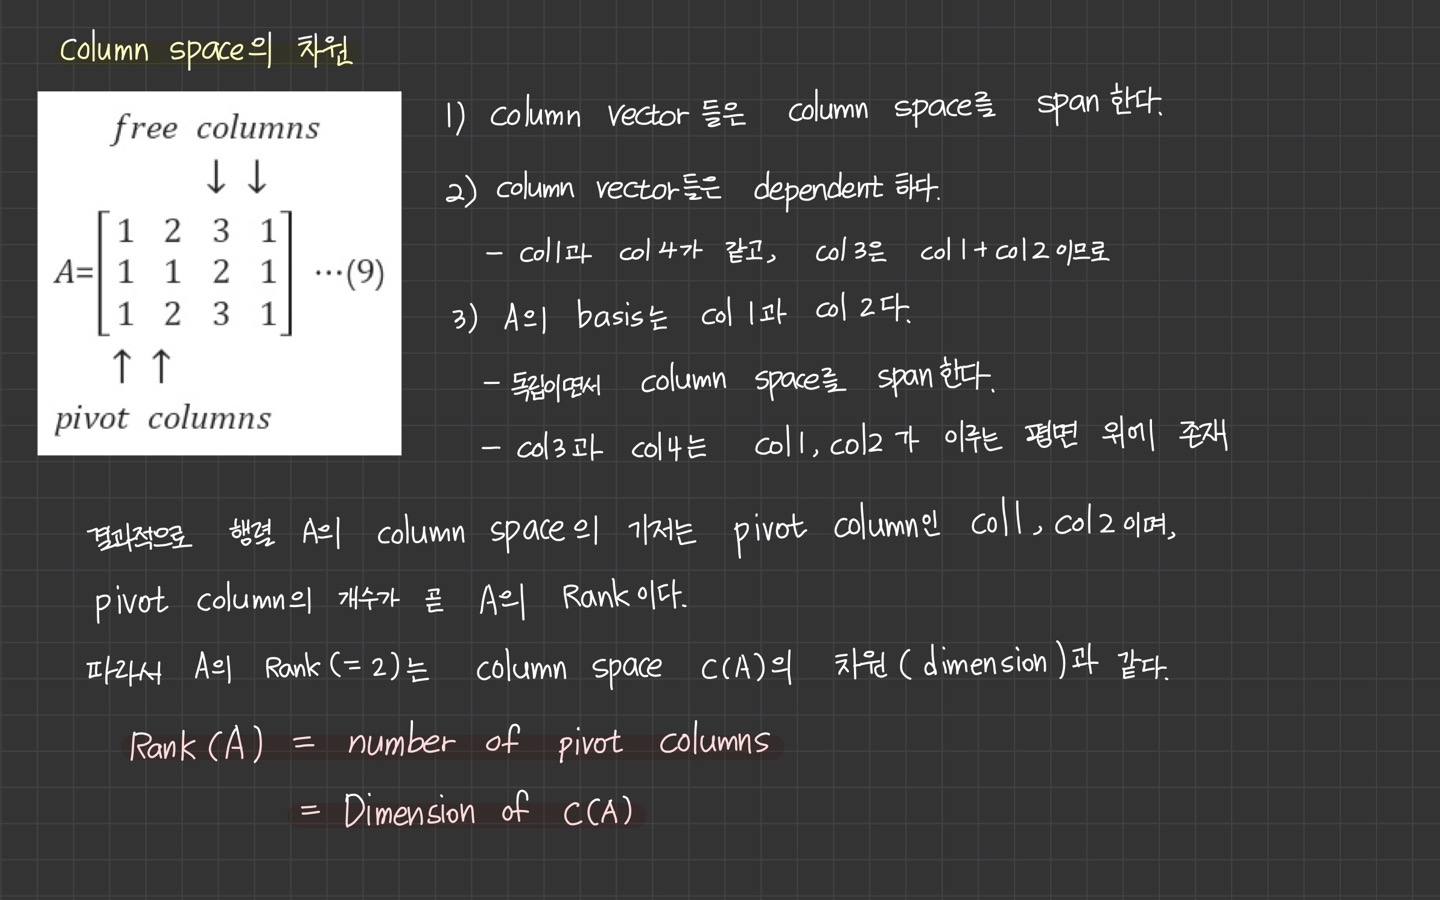 Column space의 차원
free columns
↓ ↓
A=[1 2 3 1
1 1 2 1 ⋯(9)
1 2 3 1]
↑ ↑
pivot columns
1) column vector 들은 column space를 span 한다.
2) column vector들은 dependent 하다.
- col1과 col 4가 같고, col 3은 col 1 + col 2 이므로
3) A의 basis는 col 1과 col 2다.
- 독립이면서 column space를 span 한다.
- col3과 col4는 col1, col2 가 이루는 평면 위에 존재
결과적으로 행렬 A의 column space의 기저는 pivot column인 col1, col2 이며,
pivot column의 개수가 곧 A의 Rank 이다.
따라서 A의 Rank (= 2)는 column space C(A)의 차원 ( dimension )과 같다.
Rank (A) = number of pivot columns
= Dimension of C(A)